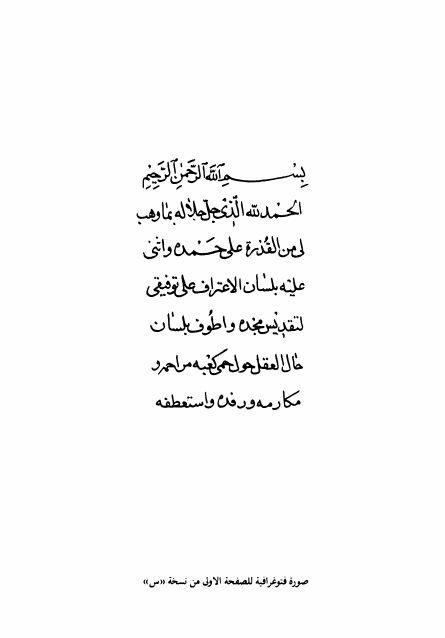 بِسْمِ ٱللَّهِ ٱلرَّحْمٰنِ ٱلرَّحِيْمِ
الحمد لله الّذي جلّ جلاله بما وهب
لي من القُدْرة على حمده واثني
عليه بلسان الاعتراف على توفيقي
لتقديس مجده واطوف بلسان
حال العقل حول حمى كعبة مراحمه و
مكارمه ورفده واستعطفه
صورة فتوغرافية للصفحة الاولى من نسخة «س»